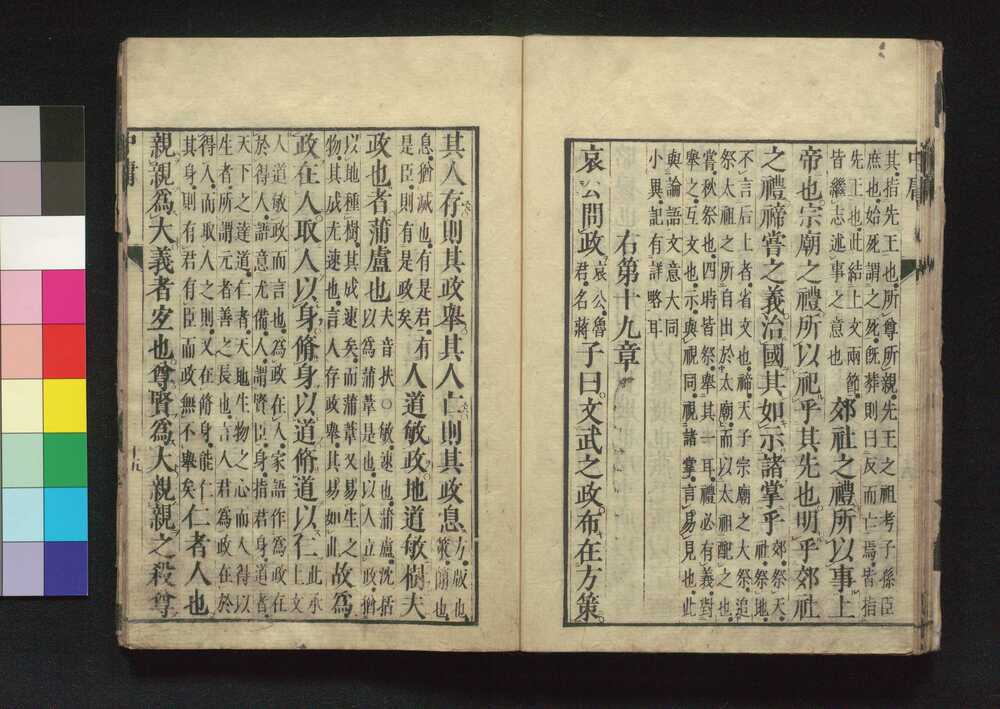 中庸
其指先王也所尊所親先王之祖考子孫臣
庶也始死謂之死既葬則曰反而亡焉皆指
先王也此結上文兩節
皆繼志述事之意也
郊社之禮所以事上
帝也宗廟之禮所以祀乎其先也明乎郊社
之禮禘嘗之義治國其如示諸掌乎
郊祭天
社祭地
不言后土者省文也禘天子宗廟之大祭追
祭太祖之所自出於太廟而以太祖配之也
嘗秋祭也四時皆祭舉其一耳禮必有義對
舉之互文也示與視同視諸掌言易見也此
與論語文意大同
小異記有詳略耳
右第十九章
哀公問政
哀公魯
君名蔣
子曰文武之政布在方策
其人存則其政舉其人亡則其政息
方版也
策簡也
息猶滅也有是君有
是臣則有是政矣
人道敏政地道敏樹夫
政也者蒲盧也
夫音扶○敏速也蒲盧沈括
以為蒲葦是也以人立政猶
以地種樹其成速矣而蒲葦又易生之
物其成尤速也言人存政舉其易如此
故為
政在人取人以身脩身以道脩道以仁
此承
上文
人道敏政而言也為政在人家語作為政在
於得人語意尤備人謂賢臣身指君身道者
天下之達道仁者天地生物之心而人得以
生者所謂元者善之長也言人君為政在於
得人而取人之則又在脩身能仁
其身則有君有臣而政無不舉矣
仁者人也
親親為大義者宜也尊賢為大親親之殺尊
中庸
十五